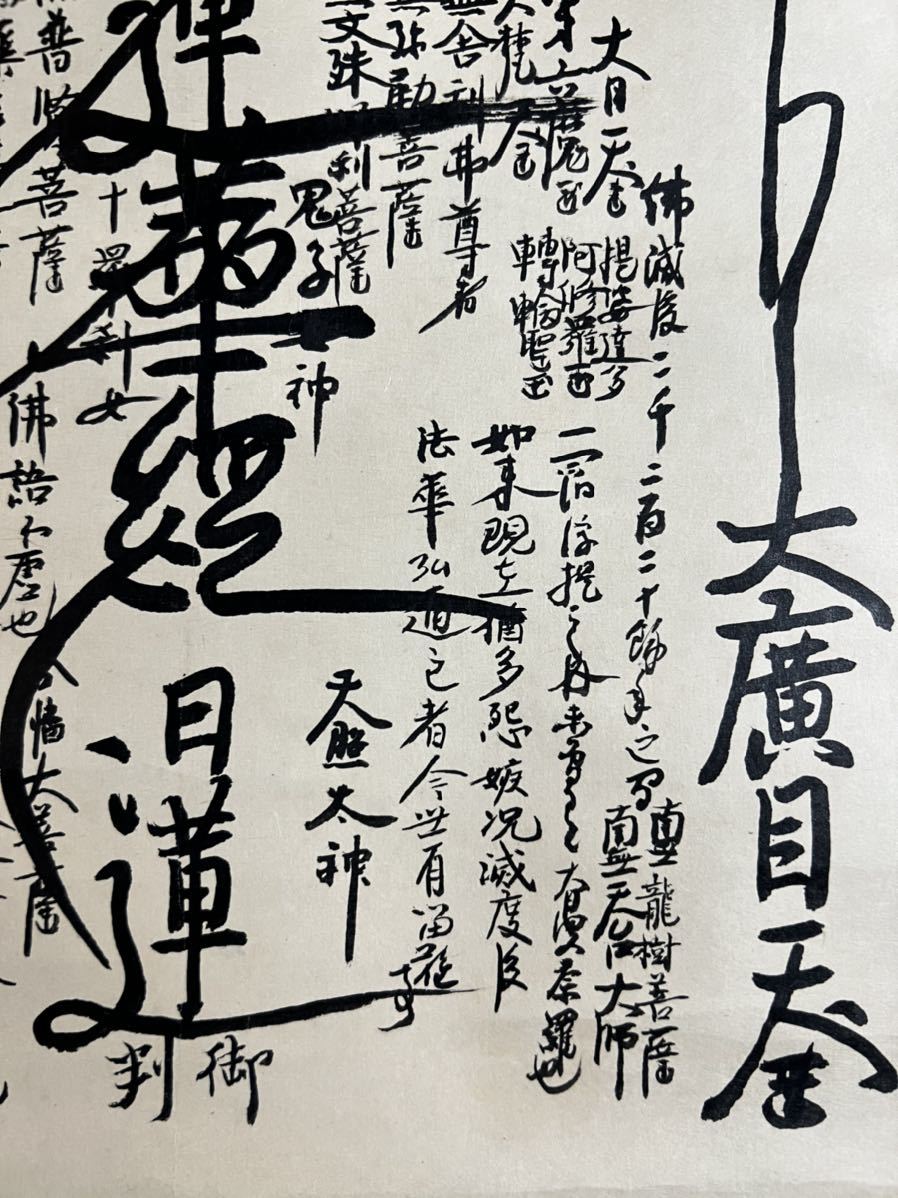 大廣目天王
佛滅度後二千二百二十餘年之間
南無龍樹菩薩
南無天台大師
大日天王
提婆達多
阿修羅王
轉輪聖王
一閻浮提之内未曾有之大漫荼羅也
如来現在猶多怨嫉况滅度後
法華弘通之者今世有留難事
舎利弗尊者
弥勒菩薩
文殊師利菩薩
鬼子母神
天照太神
蓮華經
日蓮
御判
十羅刹女
普賢菩薩
佛語不虚也
八幡大菩薩